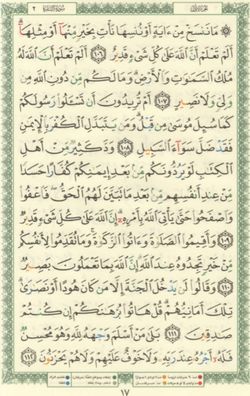 مَا نَنسَخْ مِنْ ءَايَةٍ أَوْ نُنسِهَا نَأْتِ بِخَيْرٍ مِّنْهَآ أَوْ مِثْلِهَآ
أَلَمْ تَعْلَمْ أَنَّ ٱللَّهَ عَلَىٰ كُلِّ شَىْءٍ قَدِيرٌ ١٠٦ أَلَمْ تَعْلَمْ أَنَّ ٱللَّهَ لَهُۥ
مُلْكُ ٱلسَّمَٰوَٰتِ وَٱلْأَرْضِ وَمَا لَكُم مِّن دُونِ ٱللَّهِ مِن
وَلِىٍّ وَلَا نَصِيرٍ ١٠٧ أَمْ تُرِيدُونَ أَن تَسْـَٔلُوا۟ رَسُولَكُمْ
كَمَا سُئِلَ مُوسَىٰ مِن قَبْلُ وَمَن يَتَبَدَّلِ ٱلْكُفْرَ بِٱلْإِيمَٰنِ
فَقَدْ ضَلَّ سَوَآءَ ٱلسَّبِيلِ ١٠٨ وَدَّ كَثِيرٌ مِّنْ أَهْلِ
ٱلْكِتَٰبِ لَوْ يَرُدُّونَكُم مِّنۢ بَعْدِ إِيمَٰنِكُمْ كُفَّارًا حَسَدًا
مِّنْ عِندِ أَنفُسِهِم مِّنۢ بَعْدِ مَا تَبَيَّنَ لَهُمُ ٱلْحَقُّ فَٱعْفُوا۟
وَٱصْفَحُوا۟ حَتَّىٰ يَأْتِىَ ٱللَّهُ بِأَمْرِهِۦٓ إِنَّ ٱللَّهَ عَلَىٰ كُلِّ شَىْءٍ قَدِيرٌ
١٠٩ وَأَقِيمُوا۟ ٱلصَّلَوٰةَ وَءَاتُوا۟ ٱلزَّكَوٰةَ وَمَا تُقَدِّمُوا۟ لِأَنفُسِكُم
مِّنْ خَيْرٍ تَجِدُوهُ عِندَ ٱللَّهِ إِنَّ ٱللَّهَ بِمَا تَعْمَلُونَ بَصِيرٌ
١١٠ وَقَالُوا۟ لَن يَدْخُلَ ٱلْجَنَّةَ إِلَّا مَن كَانَ هُودًا أَوْ نَصَٰرَىٰ
تِلْكَ أَمَانِيُّهُمْ قُلْ هَاتُوا۟ بُرْهَٰنَكُمْ إِن كُنتُمْ
صَٰدِقِينَ ١١١ بَلَىٰ مَنْ أَسْلَمَ وَجْهَهُۥ لِلَّهِ وَهُوَ مُحْسِنٌ
فَلَهُۥٓ أَجْرُهُۥ عِندَ رَبِّهِۦ وَلَا خَوْفٌ عَلَيْهِمْ وَلَا هُمْ يَحْزَنُونَ ١١٢
١٧